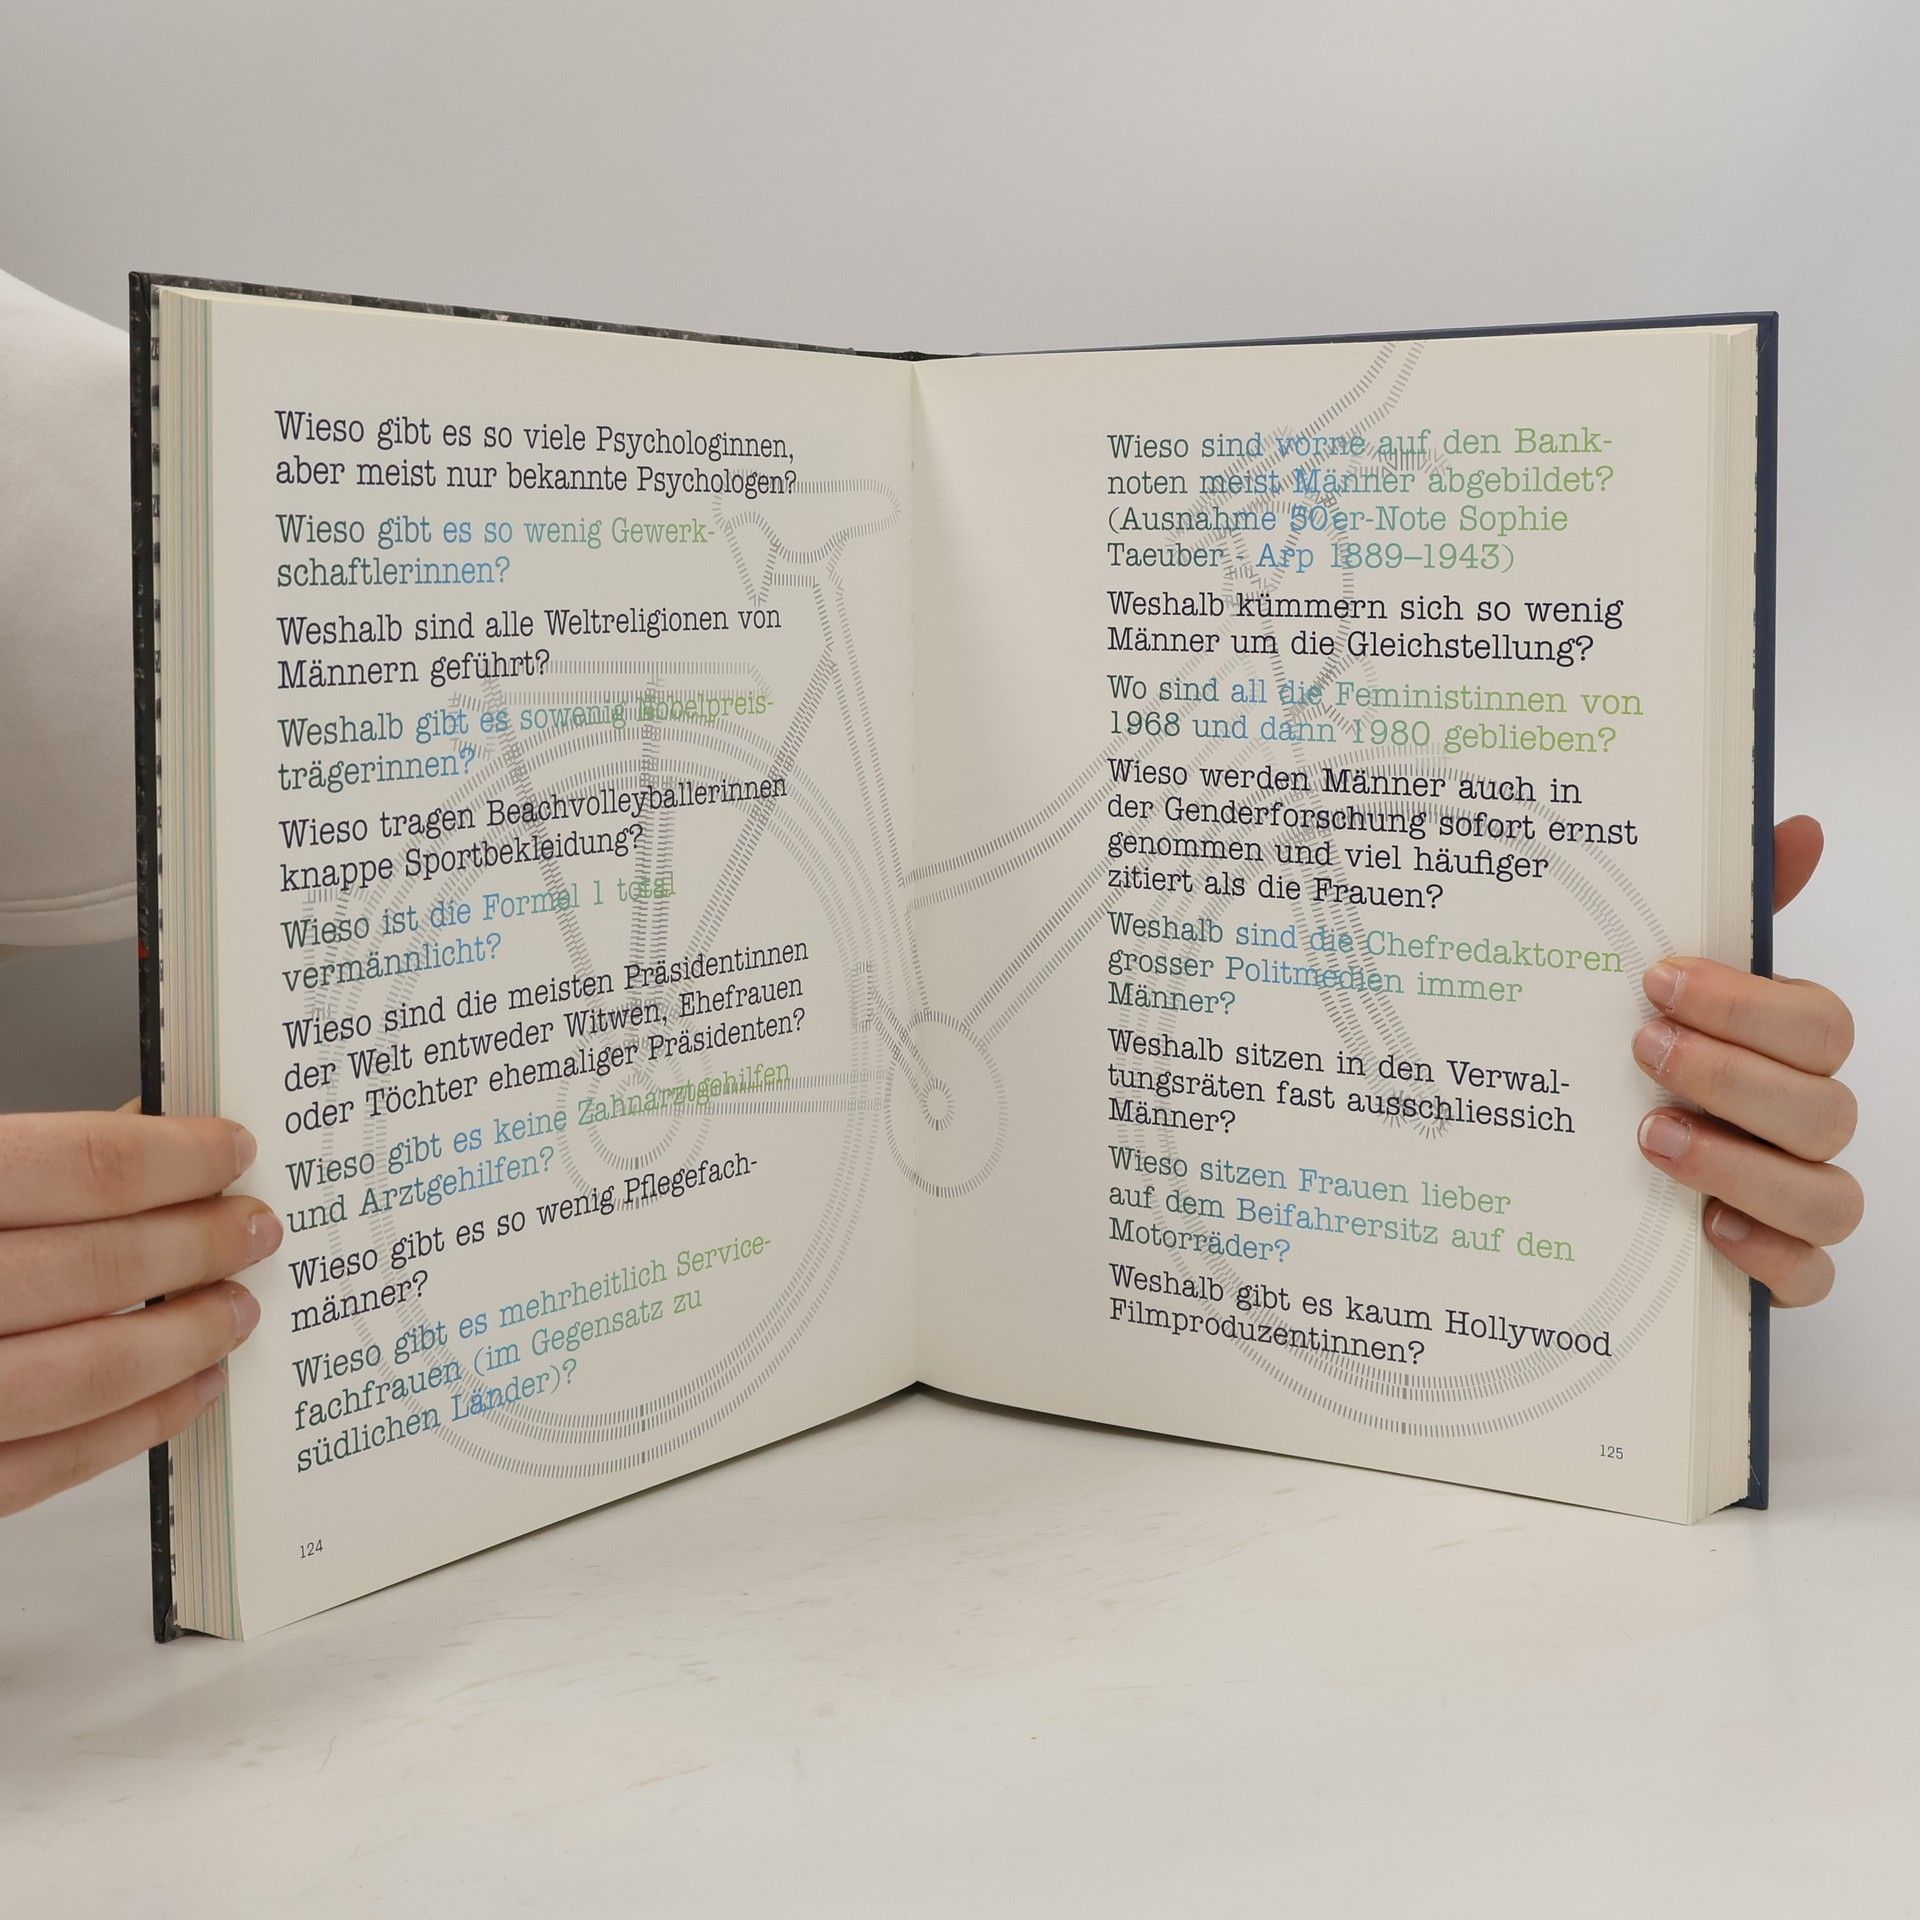 Wieso gibt es so viele Psychologinnen,
aber meist nur bekannte Psychologen?
Wieso gibt es so wenig Gewerk-
schaftlerinnen?
Weshalb sind alle Weltreligionen von
Männern geführt?
Weshalb gibt es sowenig Nobelpreis-
trägerinnen?
Wieso tragen Beachvolleyballerinnen
knappe Sportbekleidung?
Wieso ist die Formel 1 total
vermännlicht?
Wieso sind die meisten Präsidentinnen
der Welt entweder Witwen, Ehefrauen
oder Töchter ehemaliger Präsidenten?
Wieso gibt es keine Zahnarztgehilfen
und Arztgehilfen?
Wieso gibt es so wenig Pflegefach-
männer?
Wieso gibt es mehrheitlich Service-
fachfrauen (im Gegensatz zu
südlichen Länder)?
124
Wieso sind vorne auf den Bank-
noten meist Männer abgebildet?
(Ausnahme 50er-Note Sophie
Taeuber - Arp 1889–1943)
Weshalb kümmern sich so wenig
Männer um die Gleichstellung?
Wo sind all die Feministinnen von
1968 und dann 1980 geblieben?
Wieso werden Männer auch in
der Genderforschung sofort ernst
genommen und viel häufiger
zitiert als die Frauen?
Weshalb sind die Chefredaktoren
grosser Politmedien immer
Männer?
Weshalb sitzen in den Verwal-
tungsräten fast ausschliessich
Männer?
Wieso sitzen Frauen lieber
auf dem Beifahrersitz auf den
Motorräder?
Weshalb gibt es kaum Hollywood
Filmproduzentinnen?
125